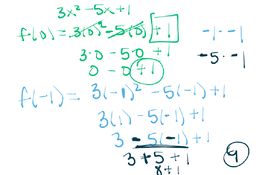 3x² - 5x + 1
f(0) = 3(0)² - 5(0) + 1
3·0 - 5·0 + 1
0 - 0 + 1
-1 · -1
-5 · -1
f(-1) = 3(-1)² - 5(-1) + 1
3(1) - 5(-1) + 1
3 - 5(-1) + 1
3 + 5 + 1
8 + 1
9